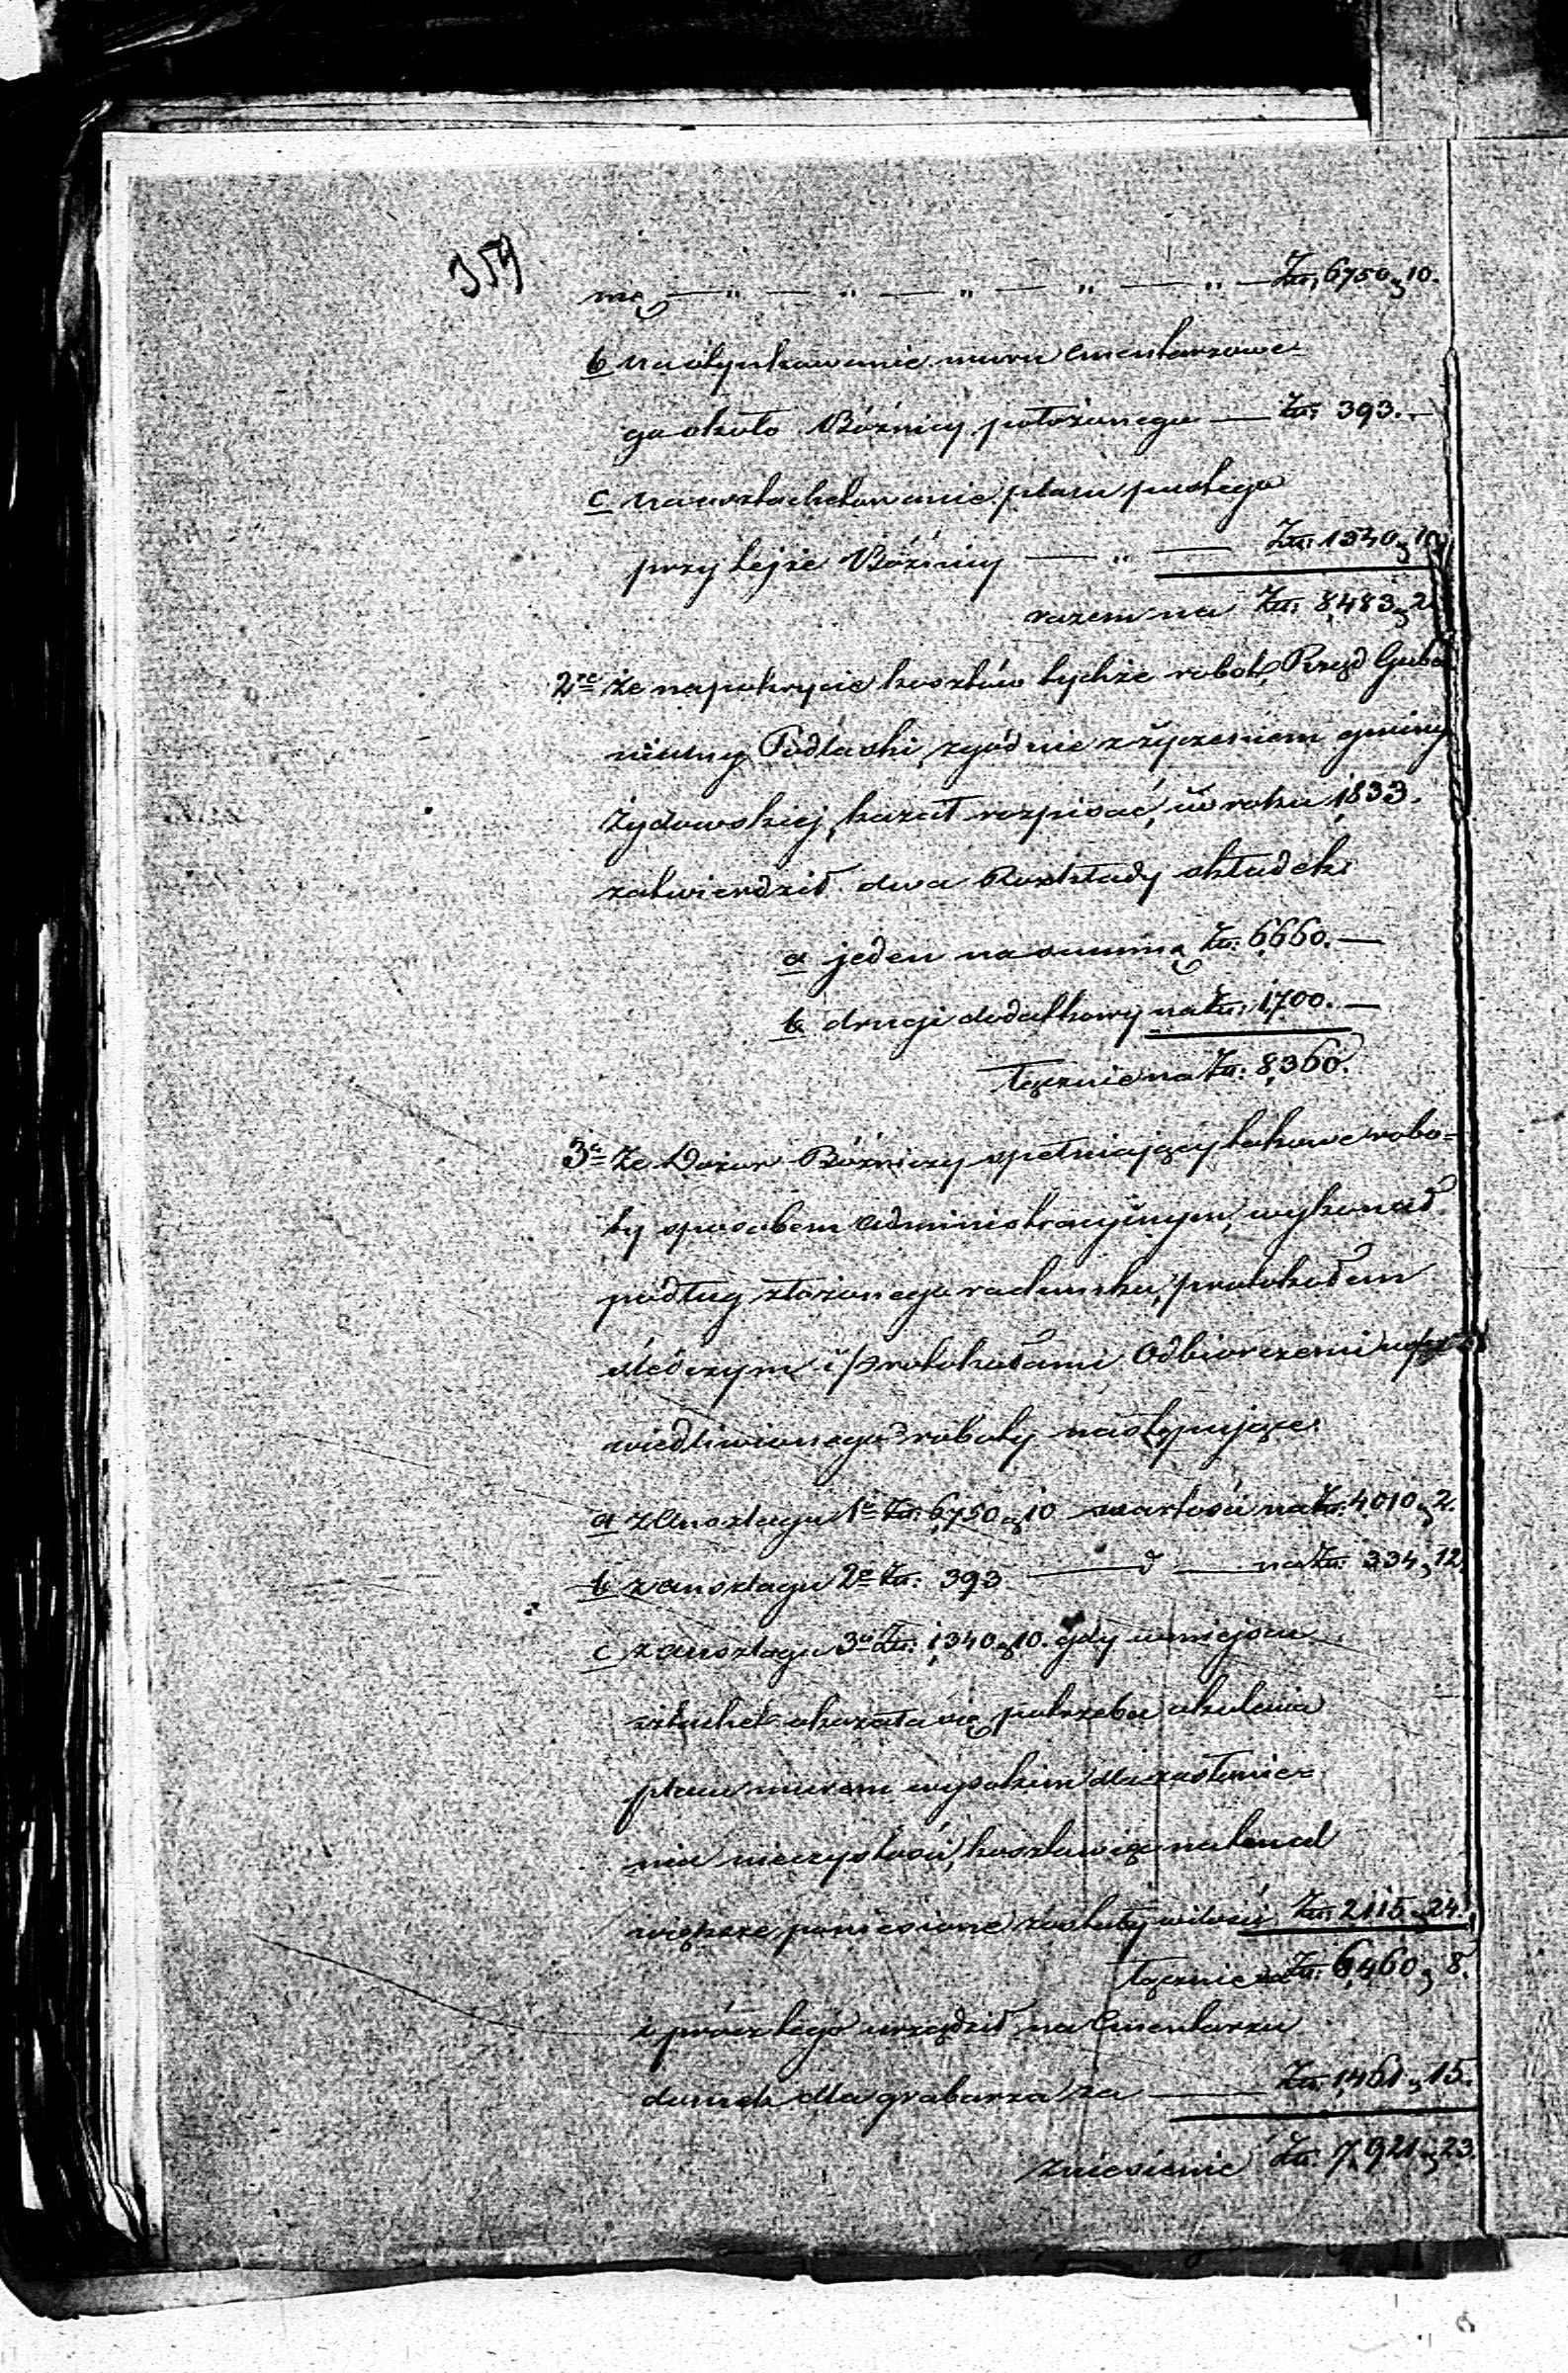 359
mę — " — " — " — " — " — Złł. 6750 g 10.
b na otynkowanie muru Cmentarzowe-
go około Bóźnicy położonego — Złł: 393. —
c na osztachetowanie placu pustego
przy tejże Bóźnicy — " — Złł: 1340 g 10
razem na Złł: 8,483 g 2
2re Że na pokrycie kosztów tychże robót, Rząd Guber
nialny Podlaski, zgodnie z życzeniem gminy
Żydowskiej, kazał rozpisać, i w roku 1833.
zatwierdził dwa Rozkłady składek:
a jeden na summę Złł: 6660. —
b drugi dodatkowy na Złł: 1,700. —
łącznie na Złł: 8,360.
3e Że Dozór Bóżniczy spełniający takowe robo-
ty sposobem administracyinym, wykonał
podług złożonego rachunku, protokołem
śledczym i protokołami Odbiorczemi uspra
wiedliwionego roboty następujące:
a z Anszlagu 1o Złł: 6,750 g 10 wartości na Złł: 4,010 g 2.
b z anszlagu 2o Złł: 393. — d — na Złł: 334 g 12
c z anszlagu 3o Złł: 1,340 g 10. gdy w miejscu
sztachet okazała się potrzeba okolenia
placu murem wysokim dla zasłonie-
nia nieczystości, koszta więc na ten cel
większe poniesione zostały w ilości Złł: 2115 g 24.
łącznie na Złł: 6,460 g 8.
i prócz tego urządził na Cmentarzu
domek dla grabarza za — Złł: 1,461 g 15.
zniesienie Złł: 7,921 g 23.